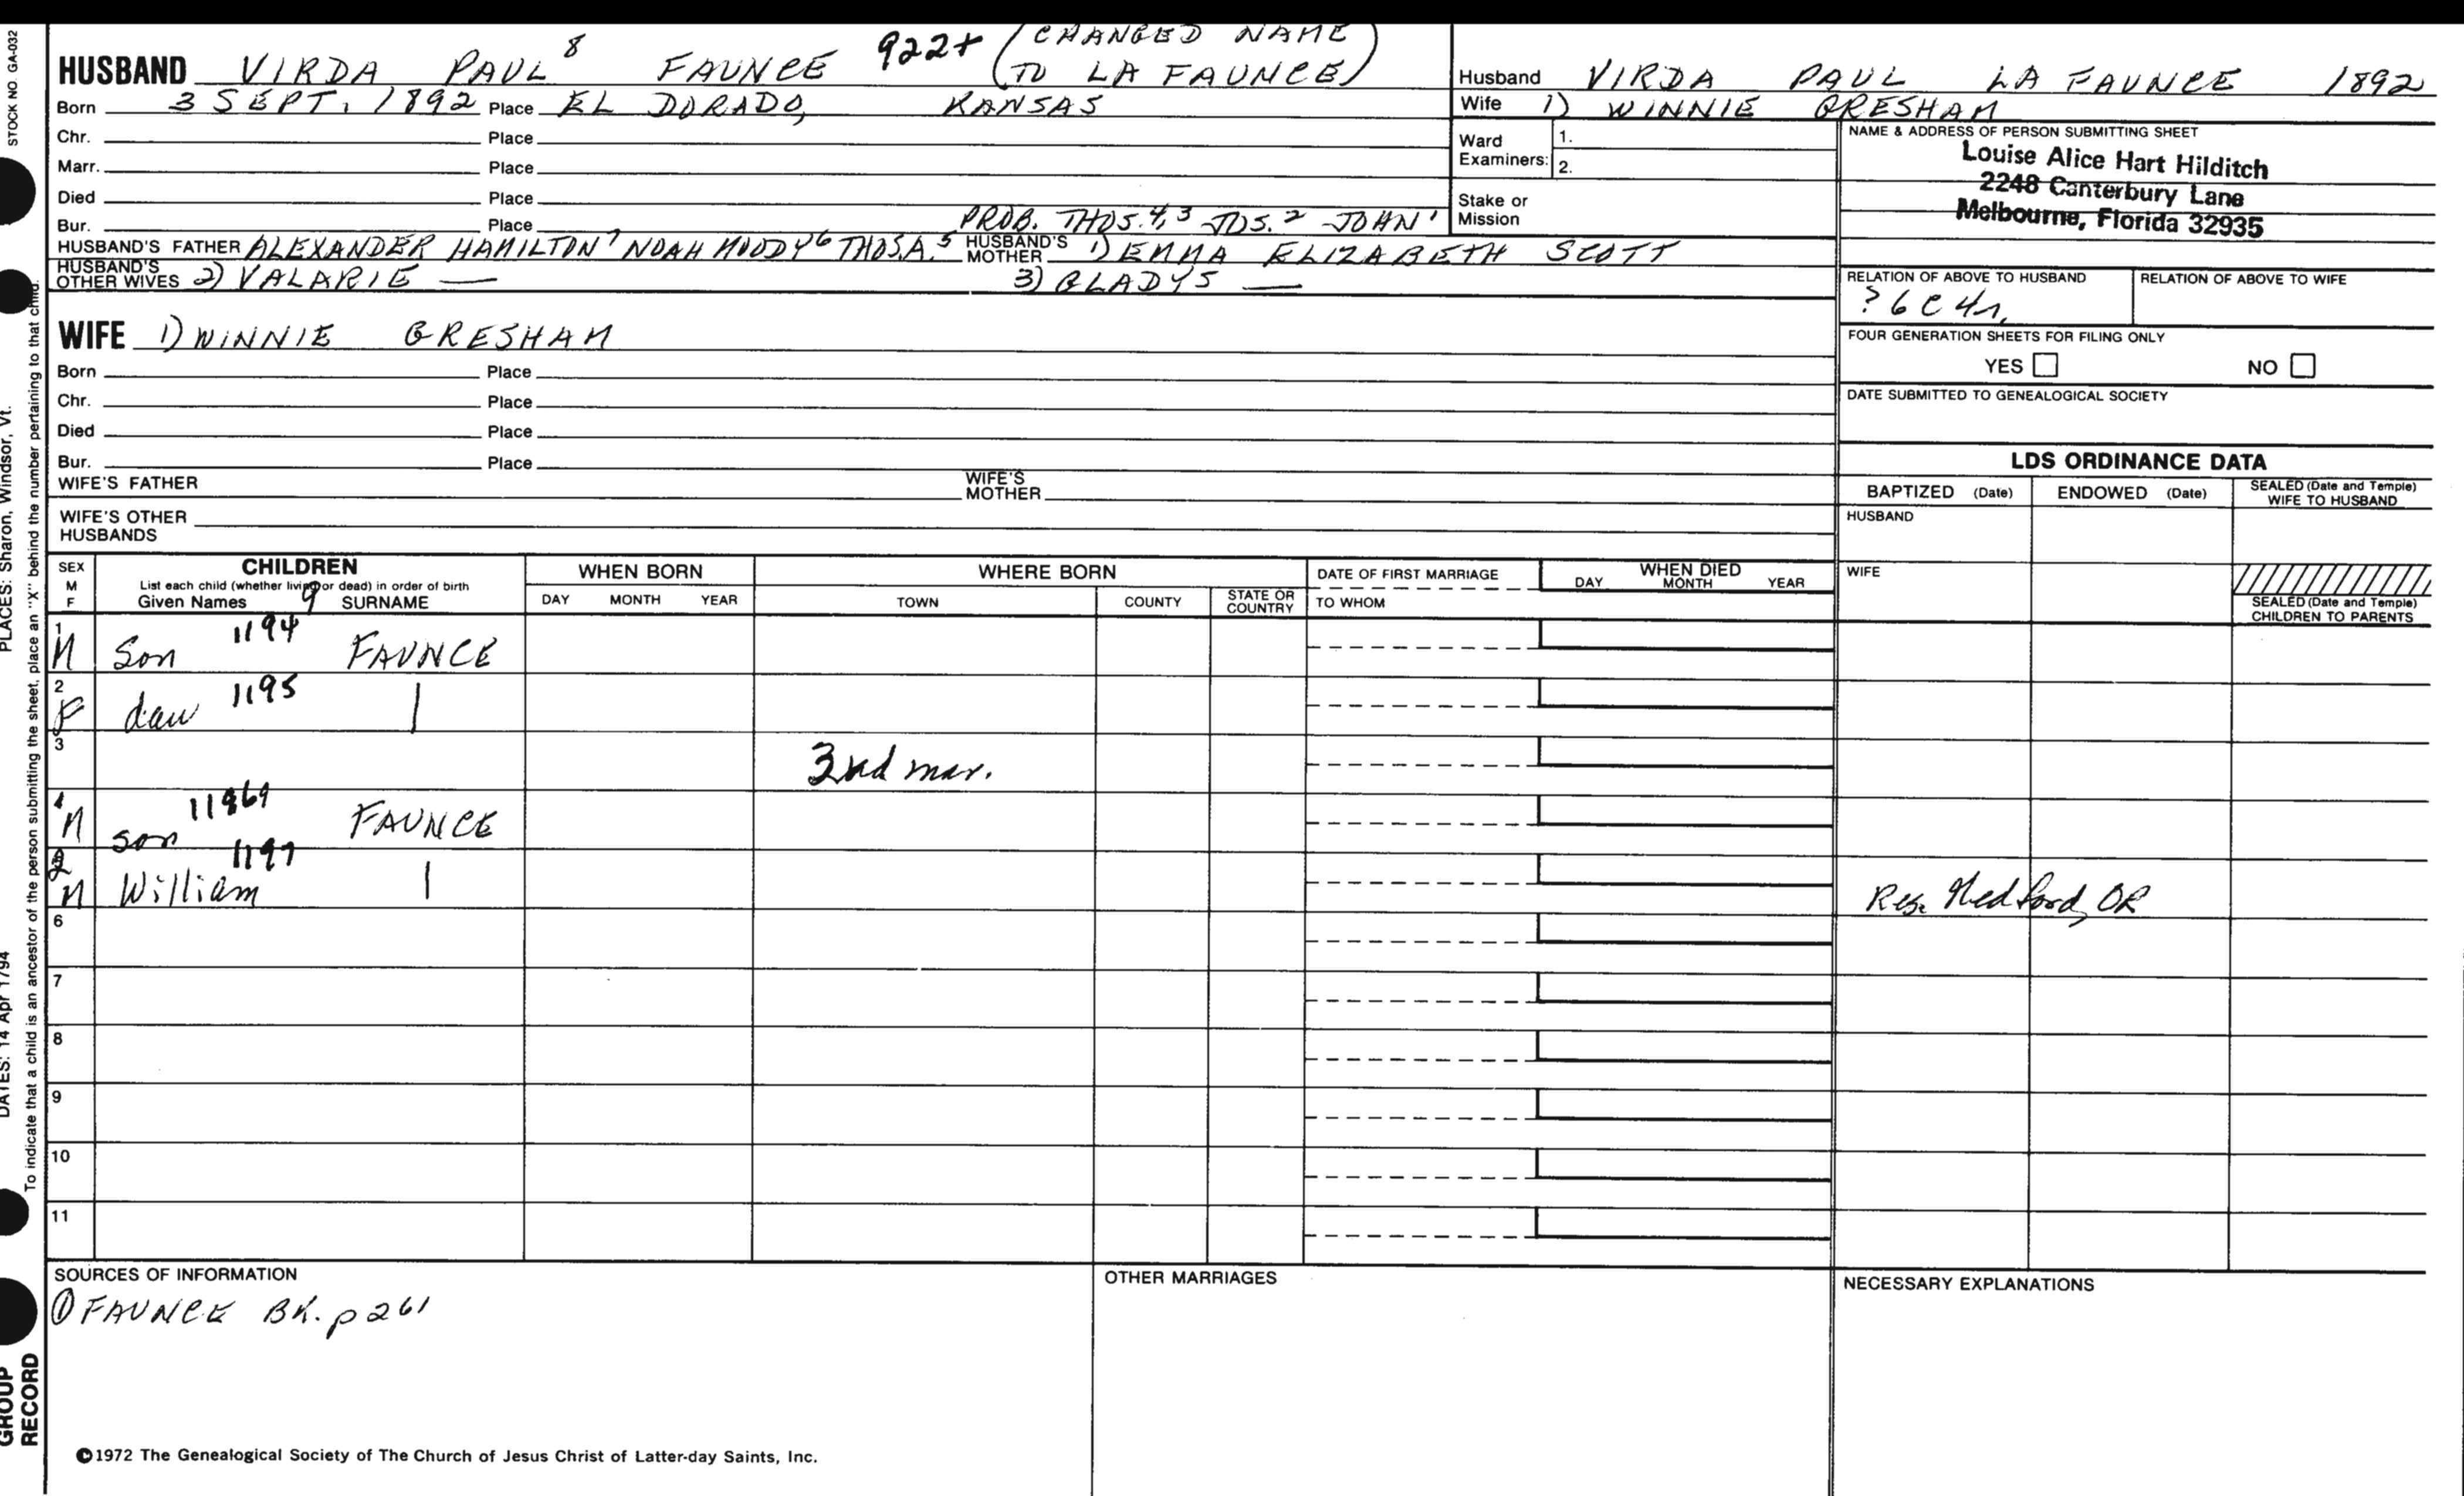 STOCK NO. GA-032
HUSBAND VIRDA PAUL 8 FAUNCE 922+ (CHANGED NAME
TO LA FAUNCE)
Born 3 SEPT. 1892 Place EL DORADO, KANSAS
Chr. Place
Marr. Place
Died Place
Bur. Place PROB. THOS. 4,3 JOS. 2 JOHN 1
HUSBAND'S FATHER ALEXANDER HAMILTON 7 NOAH MOODY 6 THOS.A. 5 HUSBAND'S MOTHER 1) EMMA ELIZABETH SCOTT
HUSBAND'S OTHER WIVES 2) VALARIE — 3) GLADYS —
Husband VIRDA PAUL LA FAUNCE 1892
Wife 1) WINNIE GRESHAM
Ward Examiners: 1.
2.
Stake or Mission
NAME & ADDRESS OF PERSON SUBMITTING SHEET
Louise Alice Hart Hilditch
2248 Canterbury Lane
Melbourne, Florida 32935
RELATION OF ABOVE TO HUSBAND RELATION OF ABOVE TO WIFE
? 6 C 4r.
FOUR GENERATION SHEETS FOR FILING ONLY
YES NO
DATE SUBMITTED TO GENEALOGICAL SOCIETY
WIFE 1) WINNIE GRESHAM
Born Place
Chr. Place
Died Place
Bur. Place
WIFE'S FATHER WIFE'S MOTHER
WIFE'S OTHER HUSBANDS
LDS ORDINANCE DATA
BAPTIZED (Date) ENDOWED (Date) SEALED (Date and Temple) WIFE TO HUSBAND
HUSBAND
WIFE
SEALED (Date and Temple) CHILDREN TO PARENTS
SEX M F
CHILDREN
List each child (whether living or dead) in order of birth
Given Names 9 SURNAME
WHEN BORN
DAY MONTH YEAR
WHERE BORN
TOWN COUNTY STATE OR COUNTRY
DATE OF FIRST MARRIAGE
TO WHOM
WHEN DIED
DAY MONTH YEAR
1 M Son 1194 FAUNCE
2 F dau 1195 |
3 2nd mar.
1 M son 1196 FAUNCE
2 M William 1197 | Res. Medford, OR
6
7
8
9
10
11
SOURCES OF INFORMATION
① FAUNCE BK. p 261
OTHER MARRIAGES
NECESSARY EXPLANATIONS
©1972 The Genealogical Society of The Church of Jesus Christ of Latter-day Saints, Inc.
To indicate that a child is an ancestor of the person submitting the sheet, place an "X" behind the number pertaining to that child.
PLACES: Sharon, Windsor, Vt.
DATES: 14 Apr 1794
GROUP
RECORD